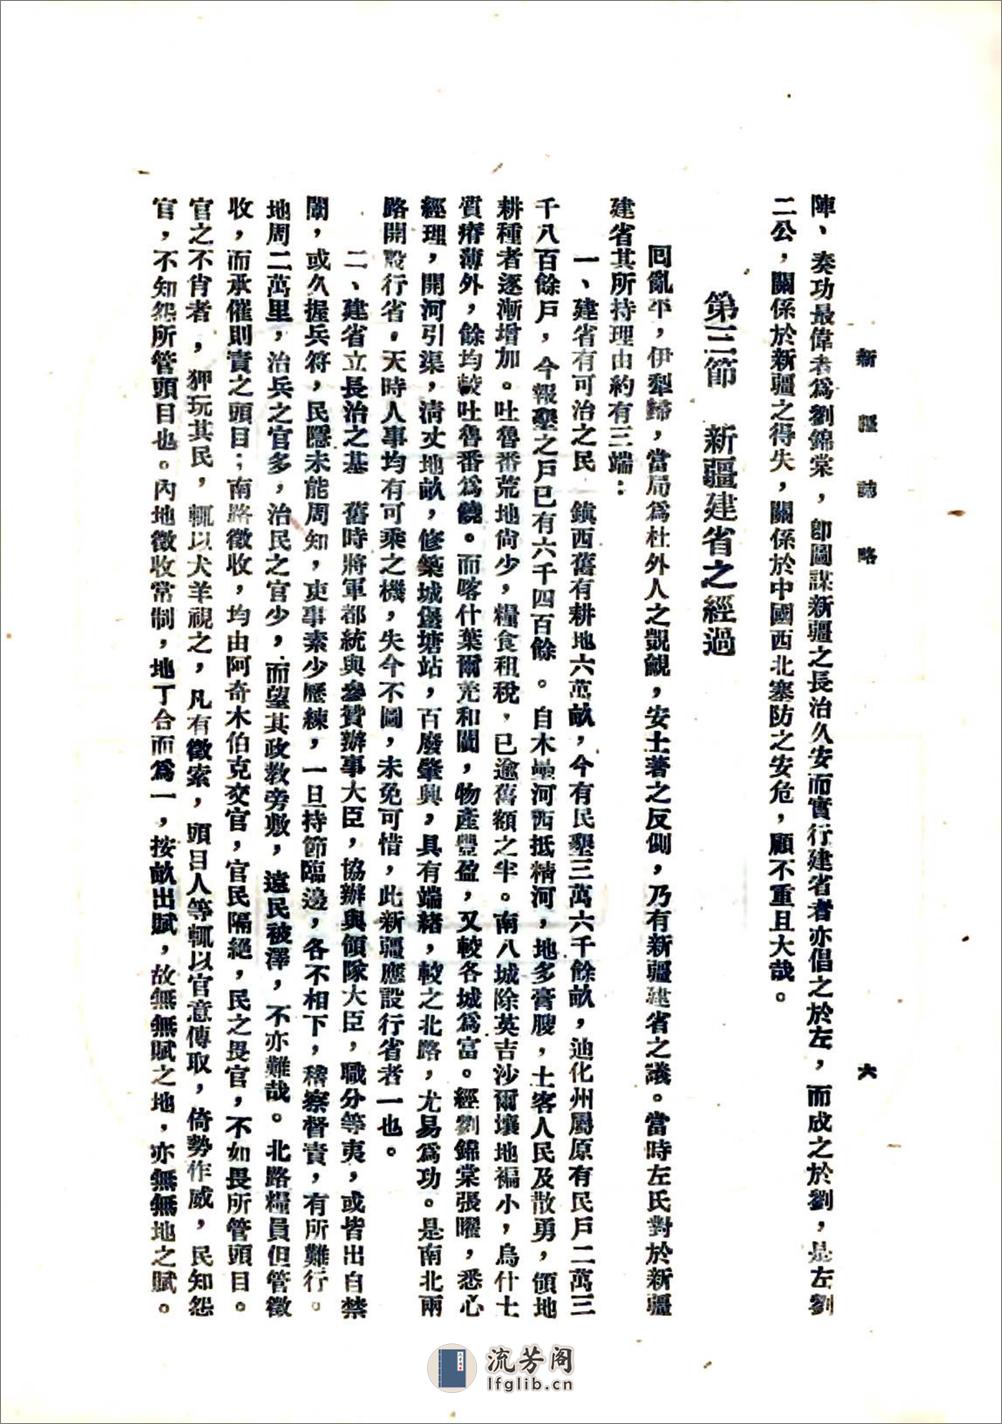 新疆誌略
六
陣、奏功最偉者為劉錦棠，卽圖謀新疆之長治久安而實行建省者亦倡之於左，而成之於劉，是左劉
二公，關係於新疆之得失，關係於中國西北塞防之安危，顧不重且大哉。
第三節　新疆建省之經過
回亂平，伊犂歸，當局為杜外人之覬覦，安土著之反側，乃有新疆建省之議。當時左氏對於新疆
建省其所持理由約有三端：
一、建省有可治之民　鎮西舊有耕地六萬畝，今有民墾三萬六千餘畝，迪化州屬原有民戶二萬三
千八百餘戶，今報墾之戶已有六千四百餘。自木壘河西抵精河，地多膏腴，土客人民及散勇，領地
耕種者逐漸增加。吐魯番荒地尙少，糧食租稅，已逾舊額之半。南八城除英吉沙爾壤地褊小，烏什土
質瘠薄外，餘均較吐魯番為饒。而喀什葉爾羌和闐，物產豐盈，又較各城為富。經劉錦棠張曜，悉心
經理，開河引渠，淸丈地畝，修築城堡塘站，百廢肇興，具有端緒，較之北路，尤易為功。是南北兩
路開設行省，天時人事均有可乘之機，失今不圖，未免可惜，此新疆應設行省者一也。
二、建省立長治之基　舊時將軍都統與參贊辦事大臣，協辦與領隊大臣，職分等夷，或皆出自禁
闥，或久握兵符，民隱未能周知，吏事素少歷練，一旦持節臨邊，各不相下，稽察督責，有所難行。
地周二萬里，治兵之官多，治民之官少，而望其政教旁敷，遠民被澤，不亦難哉。北路糧員但管徵
收，而承催則責之頭目；南路徵收，均由阿奇木伯克交官，官民隔絕，民之畏官，不如畏所管頭目。
官之不肖者，狎玩其民，輒以犬羊視之，凡有徵索，頭目人等輒以官意傳取，倚勢作威，民知怨
官，不知怨所管頭目也。內地徵收常制，地丁合而為一，按畝出賦，故無無賦之地，亦無無地之賦。
流芳阁
lfglib.cn